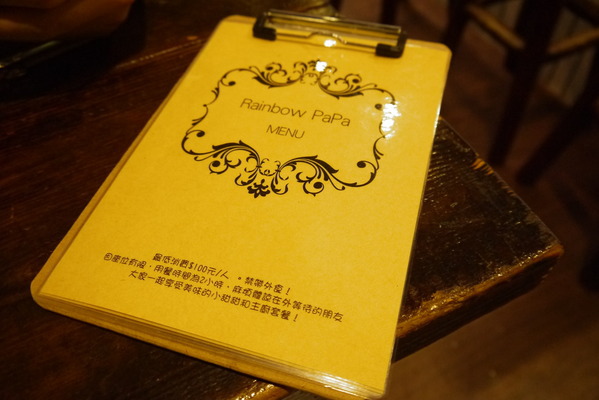 Rainbow PaPa
MENU
最低消費$100元/人 。禁帶外食!
因座位有限,用餐時間為2小時,麻煩體諒在外等待的朋友
大家一起享受美味的小甜甜和主廚套餐!